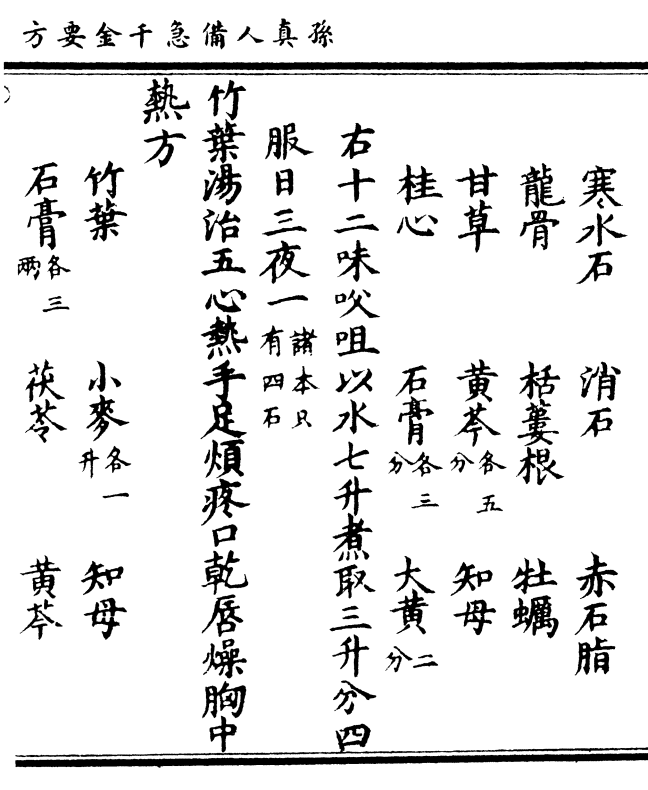 孫真人備急千金要方
寒水石 消石 赤石脂
龍骨 栝蔞根 牡蠣
甘草 黄芩各五分 知母
桂心 石膏各三分 大黄二分
右十二味㕮咀以水七升煮取三升分四
服日三夜一諸本只有四石
竹葉湯治五心熱手足煩疼口乾唇燥胸中
熱方
竹葉 小麥各一升 知母
石膏各三兩 茯苓 黄芩